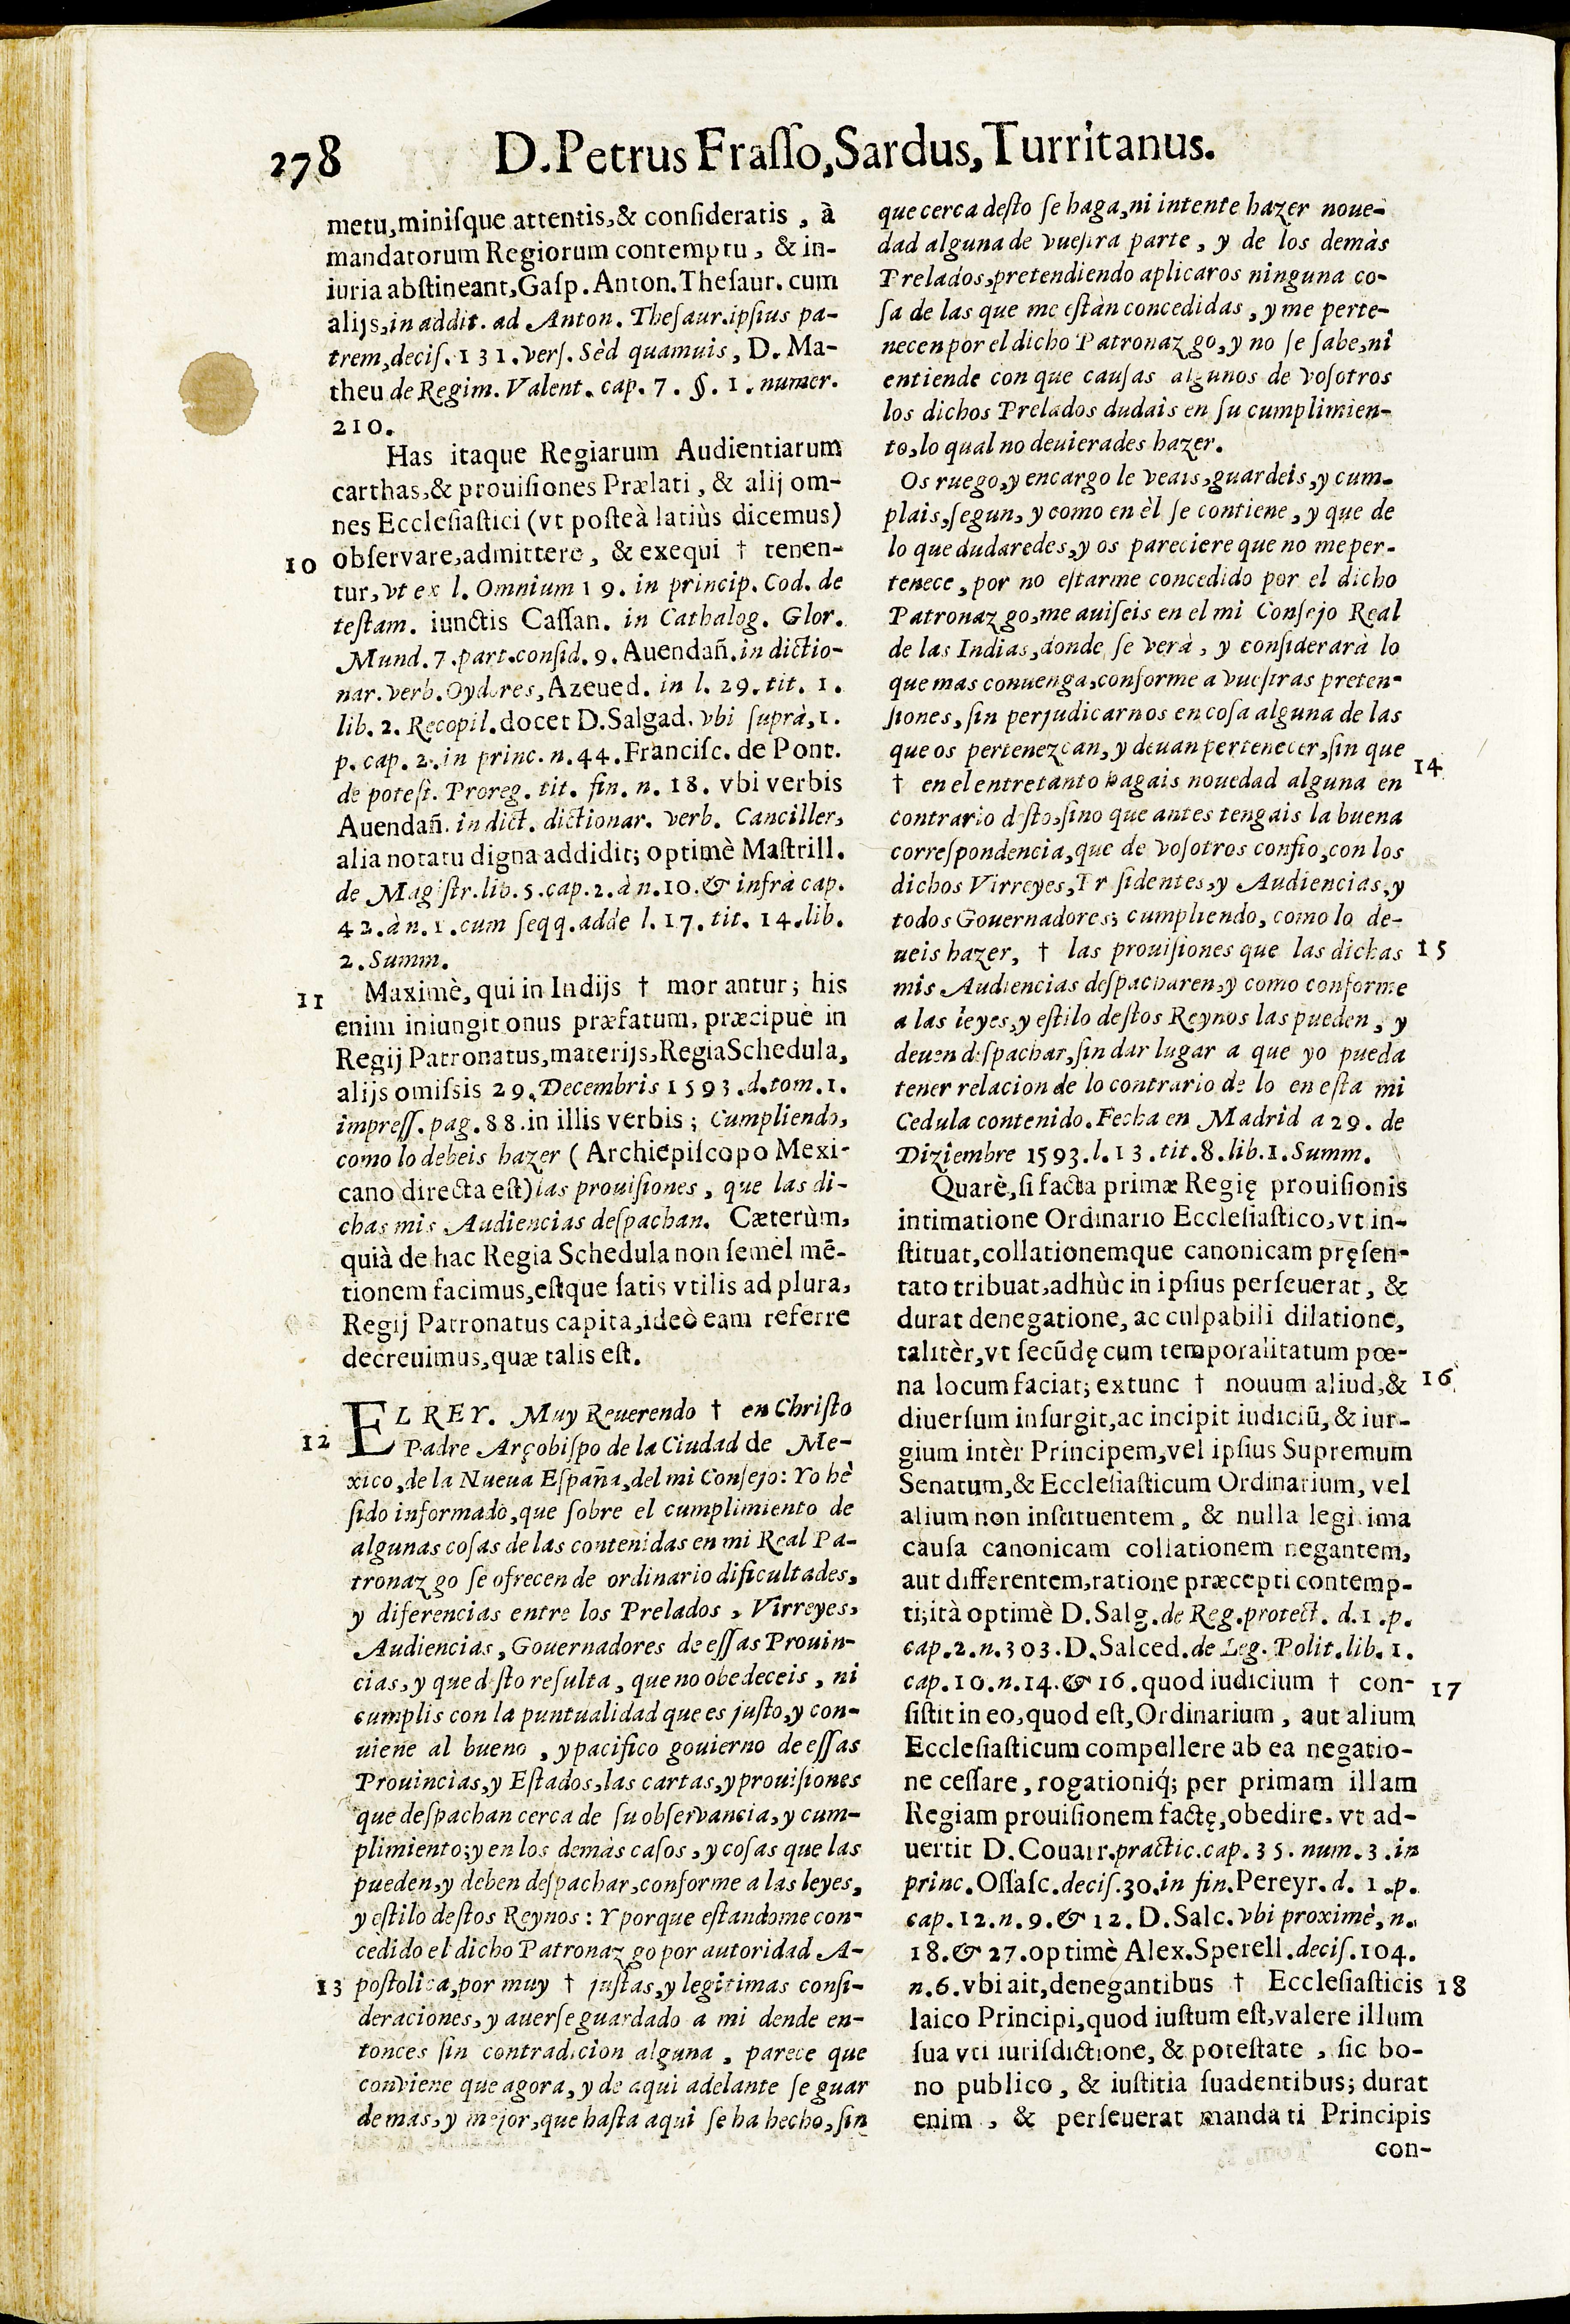 278
D. Petrus Frasso, Sardus, Turritanus.
metu, minisque attentis, & consideratis, à
mandatorum Regiorum contemptu, & in-
iuria abstineant, Gasp. Anton. Thesaur. cum
alijs, in addit. ad Anton. Thesaur. ipsius pa-
trem, decis. 131. vers. Sèd quamuis, D. Ma-
theu de Regim. Valent. cap. 7. §. 1. numer.
210.
Has itaque Regiarum Audientiarum
carthas, & prouisiones Prælati, & alij om-
nes Ecclesiastici (vt posteà latiùs dicemus)
10 observare, admittere, & exequi † tenen-
tur, vt ex l. Omnium 19. in princip. Cod. de
testam. iunctis Cassan. in Cathalog. Glor.
Mund. 7. part. consid. 9. Auendañ. in dictio-
nar. verb. Oydores, Azeued. in l. 29. tit. 1.
lib. 2. Recopil. docet D. Salgad. vbi suprà, 1.
p. cap. 2. in princ. n. 44. Francisc. de Pont.
de potest. Proreg. tit. fin. n. 18. vbi verbis
Auendañ. in dict. dictionar. verb. Canciller,
alia notatu digna addidit; optimè Mastrill.
de Magistr. lib. 5. cap. 2. à n. 10. & infrà cap.
42. à n. 1. cum seqq. adde l. 17. tit. 14. lib.
2. Summ.
11 Maximè, qui in Indijs † morantur; his
enim iniungit onus præfatum, præcipuè in
Regij Patronatus, materijs, Regia Schedula,
alijs omissis 29. Decembris 1593. d. tom. 1.
impress. pag. 88. in illis verbis; Cumpliendo,
como lo debeis hazer (Archiepiscopo Mexi-
cano directa est) las prouisiones, que las di-
chas mis Audiencias despachan. Cæterùm,
quià de hac Regia Schedula non semel mẽ-
tionem facimus, estque satis vtilis ad plura,
Regij Patronatus capita, ideò eam referre
decreuimus, quæ talis est.
EL REY. Muy Reuerendo † en Christo
12 Padre Arçobispo de la Ciudad de Me-
xico, de la Nueua España, del mi Consejo: Yo hè
sido informado, que sobre el cumplimiento de
algunas cosas de las contenidas en mi Real Pa-
tronazgo se ofrecen de ordinario dificultades,
y diferencias entre los Prelados, Virreyes,
Audiencias, Gouernadores de essas Prouin-
cias, y que desto resulta, que no obedeceis, ni
cumplis con la puntualidad que es justo, y con-
uiene al bueno, y pacifico gouierno de essas
Prouincias, y Estados, las cartas, y prouisiones
que despachan cerca de su observancia, y cum-
plimiento; y en los demàs casos, y cosas que las
pueden, y deben despachar, conforme a las leyes,
y estilo destos Reynos: Y porque estandome con-
cedido el dicho Patronazgo por autoridad A-
13 postolica, por muy † justas, y legitimas consi-
deraciones, y auerse guardado a mi dende en-
tonces sin contradicion alguna, parece que
conviene que agora, y de aqui adelante se guar
de mas, y mejor, que hasta aqui se ha hecho, sin
que cerca desto se haga, ni intente hazer noue-
dad alguna de vuestra parte, y de los demàs
Prelados, pretendiendo aplicaros ninguna co-
sa de las que me estàn concedidas, y me perte-
necen por el dicho Patronazgo, y no se sabe, ni
entiende con que causas algunos de vosotros
los dichos Prelados dudais en su cumplimien-
to, lo qual no deuierades hazer.
Os ruego, y encargo le veais, guardeis, y cum-
plais, segun, y como en èl se contiene, y que de
lo que dudaredes, y os pareciere que no me per-
tenece, por no estarme concedido por el dicho
Patronazgo, me auiseis en el mi Consejo Real
de las Indias, donde se verà, y considerarà lo
que mas conuenga, conforme a vuestras preten-
siones, sin perjudicarnos en cosa alguna de las
que os pertenezcan, y deuan pertenecer, sin que
14
† en el entretanto hagais nouedad alguna en
contrario desto, sino que antes tengais la buena
correspondencia, que de vosotros confio, con los
dichos Virreyes, Presidentes, y Audiencias, y
todos Gouernadores; cumpliendo, como lo de-
ueis hazer, † las prouisiones que las dichas 15
mis Audiencias despacharen, y como conforme
a las leyes, y estilo destos Reynos las pueden, y
deuen despachar, sin dar lugar a que yo pueda
tener relacion de lo contrario de lo en esta mi
Cedula contenido. Fecha en Madrid a 29. de
Diziembre 1593. l. 13. tit. 8. lib. 1. Summ.
Quarè, si facta primæ Regię prouisionis
intimatione Ordinario Ecclesiastico, vt in-
stituat, collationemque canonicam pręsen-
tato tribuat, adhùc in ipsius perseuerat, &
durat denegatione, ac culpabili dilatione,
talitèr, vt secũdę cum temporalitatum pœ-
na locum faciat; extunc † nouum aliud, & 16
diuersum insurgit, ac incipit iudiciũ, & iur-
gium intèr Principem, vel ipsius Supremum
Senatum, & Ecclesiasticum Ordinarium, vel
alium non instituentem, & nulla legitima
causa canonicam collationem negantem,
aut differentem, ratione præcepti contemp-
ti; ità optimè D. Salg. de Reg. protect. d. 1. p.
cap. 2. n. 303. D. Salced. de Leg. Polit. lib. 1.
cap. 10. n. 14. & 16. quod iudicium † con- 17
sistit in eo, quod est, Ordinarium, aut alium
Ecclesiasticum compellere ab ea negatio-
ne cessare, rogationiq́; per primam illam
Regiam prouisionem factę, obedire, vt ad-
uertit D. Couarr. practic. cap. 35. num. 3. in
princ. Ossasc. decis. 30. in fin. Pereyr. d. 1. p.
cap. 12. n. 9. & 12. D. Salc. vbi proximè, n.
18. & 27. optimè Alex. Sperell. decis. 104.
n. 6. vbi ait, denegantibus † Ecclesiasticis 18
laico Principi, quod iustum est, valere illum
sua vti iurisdictione, & potestate, sic bo-
no publico, & iustitia suadentibus; durat
enim, & perseuerat mandati Principis
con-